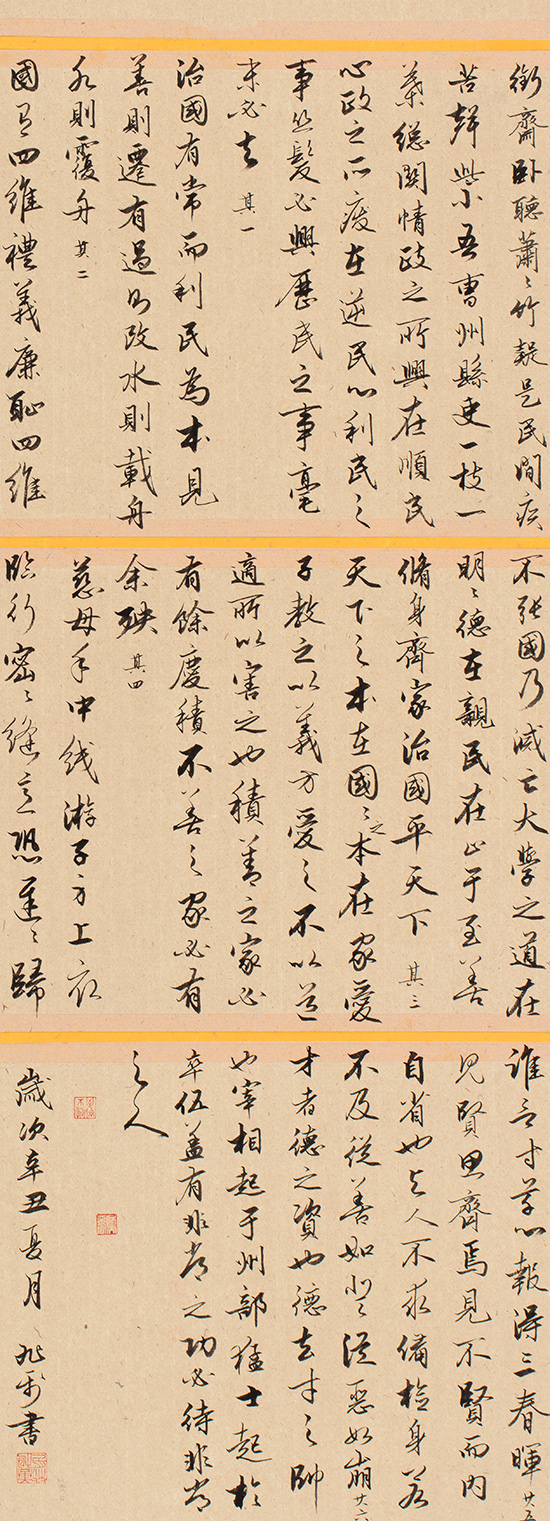 衙齋卧聽蕭々竹疑是民間疾
苦聲些小吾曹州縣吏一枝一
葉總關情政之所興在順民
心政之所廢在逆民心利民之
事丝髮必興歷民之事毫
末必去 其一
治國有常而利民為本見
善則遷有過則改水則載舟
水則覆舟 其二
國有四維禮義廉恥四維
不張國乃滅亡大學之道在
明々德在親民在止于至善
脩身齊家治國平天下 其三
天下之本在國々之本在家愛
子教之以義方愛之不以道
適所以害之也積善之家必
有餘慶積不善之家必有
余殃 其四
慈母手中线游子身上衣
臨行密々縫意恐遲々歸
誰言寸草心報得三春暉 其五
見賢思齊焉見不賢而内
自省也与人不求備檢身若
不及從善如登從惡如崩 其六
才者德之資也德者才之帥
也宰相起于州部猛士起於
卒伍蓋有非常之功必待非常
之人
歲次辛丑夏月 書